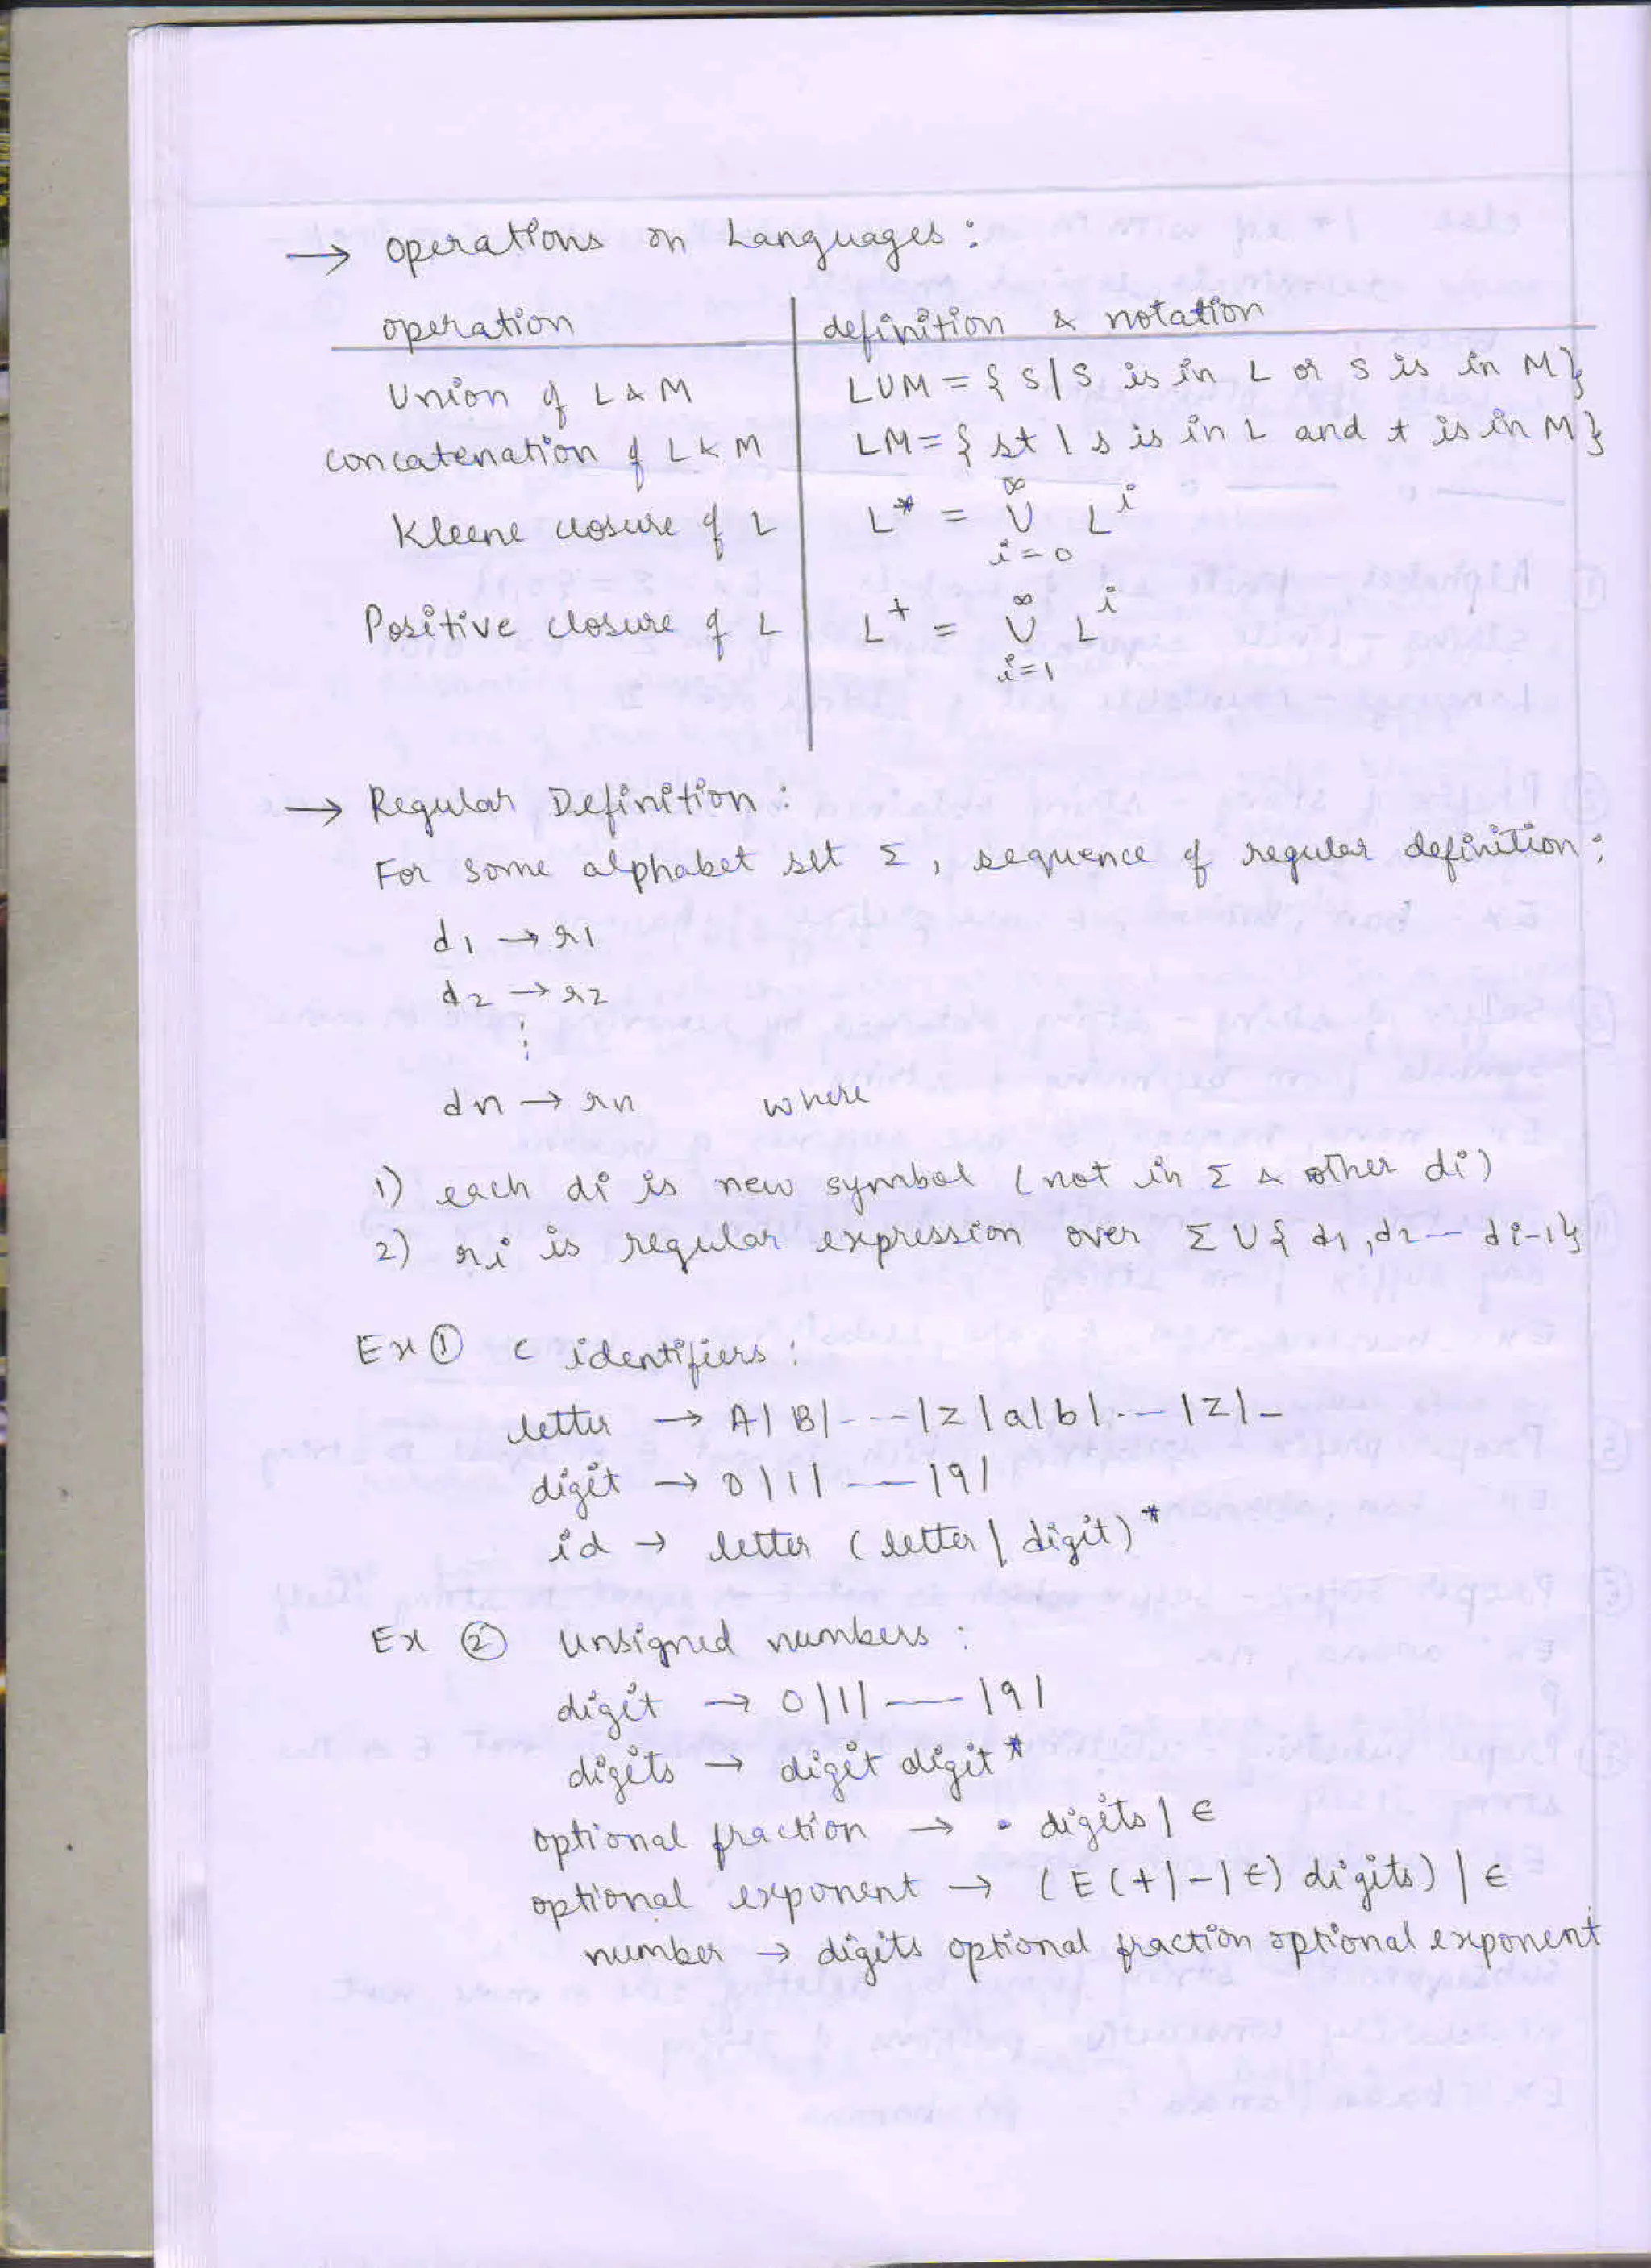 → operations on Languages :
operation | definition & notation
Union of L & M | LUM = { S / S is in L or S is in M}
concatenation of L & M | LM = { st \ s is in L and t is in M}
Kleene closure of L | L* = ∞ U i=0 L^i
Positive closure of L | L^+ = ∞ U i=1 L^i
→ Regular Definition :
For some alphabet set Σ, sequence of regular definition :
d1 → r1
d2 → r2
⋮
dn → rn where
1) each di is new symbol (not in Σ & other di)
2) ri is regular expression over Σ U { d1, d2 -- di-1}
Ex ① C identifiers :
letter → A | B | ---- | Z | a | b | .-- | Z | _
digit → 0 | 1 | —— | 9 |
id → letter (letter | digit)*
Ex ② Unsigned numbers :
digit → 0 | 1 | —— | 9 |
digits → digit digit*
optional fraction → . digits | ∈
optional exponent → (E (+ | - | ∈) digits) | ∈
number → digits optional fraction optional exponent